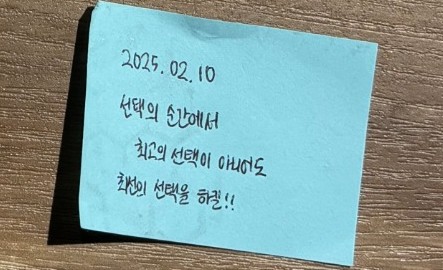 2025.02.10
선택의 순간에서
최고의 선택이 아니어도
최선의 선택을 하길!!